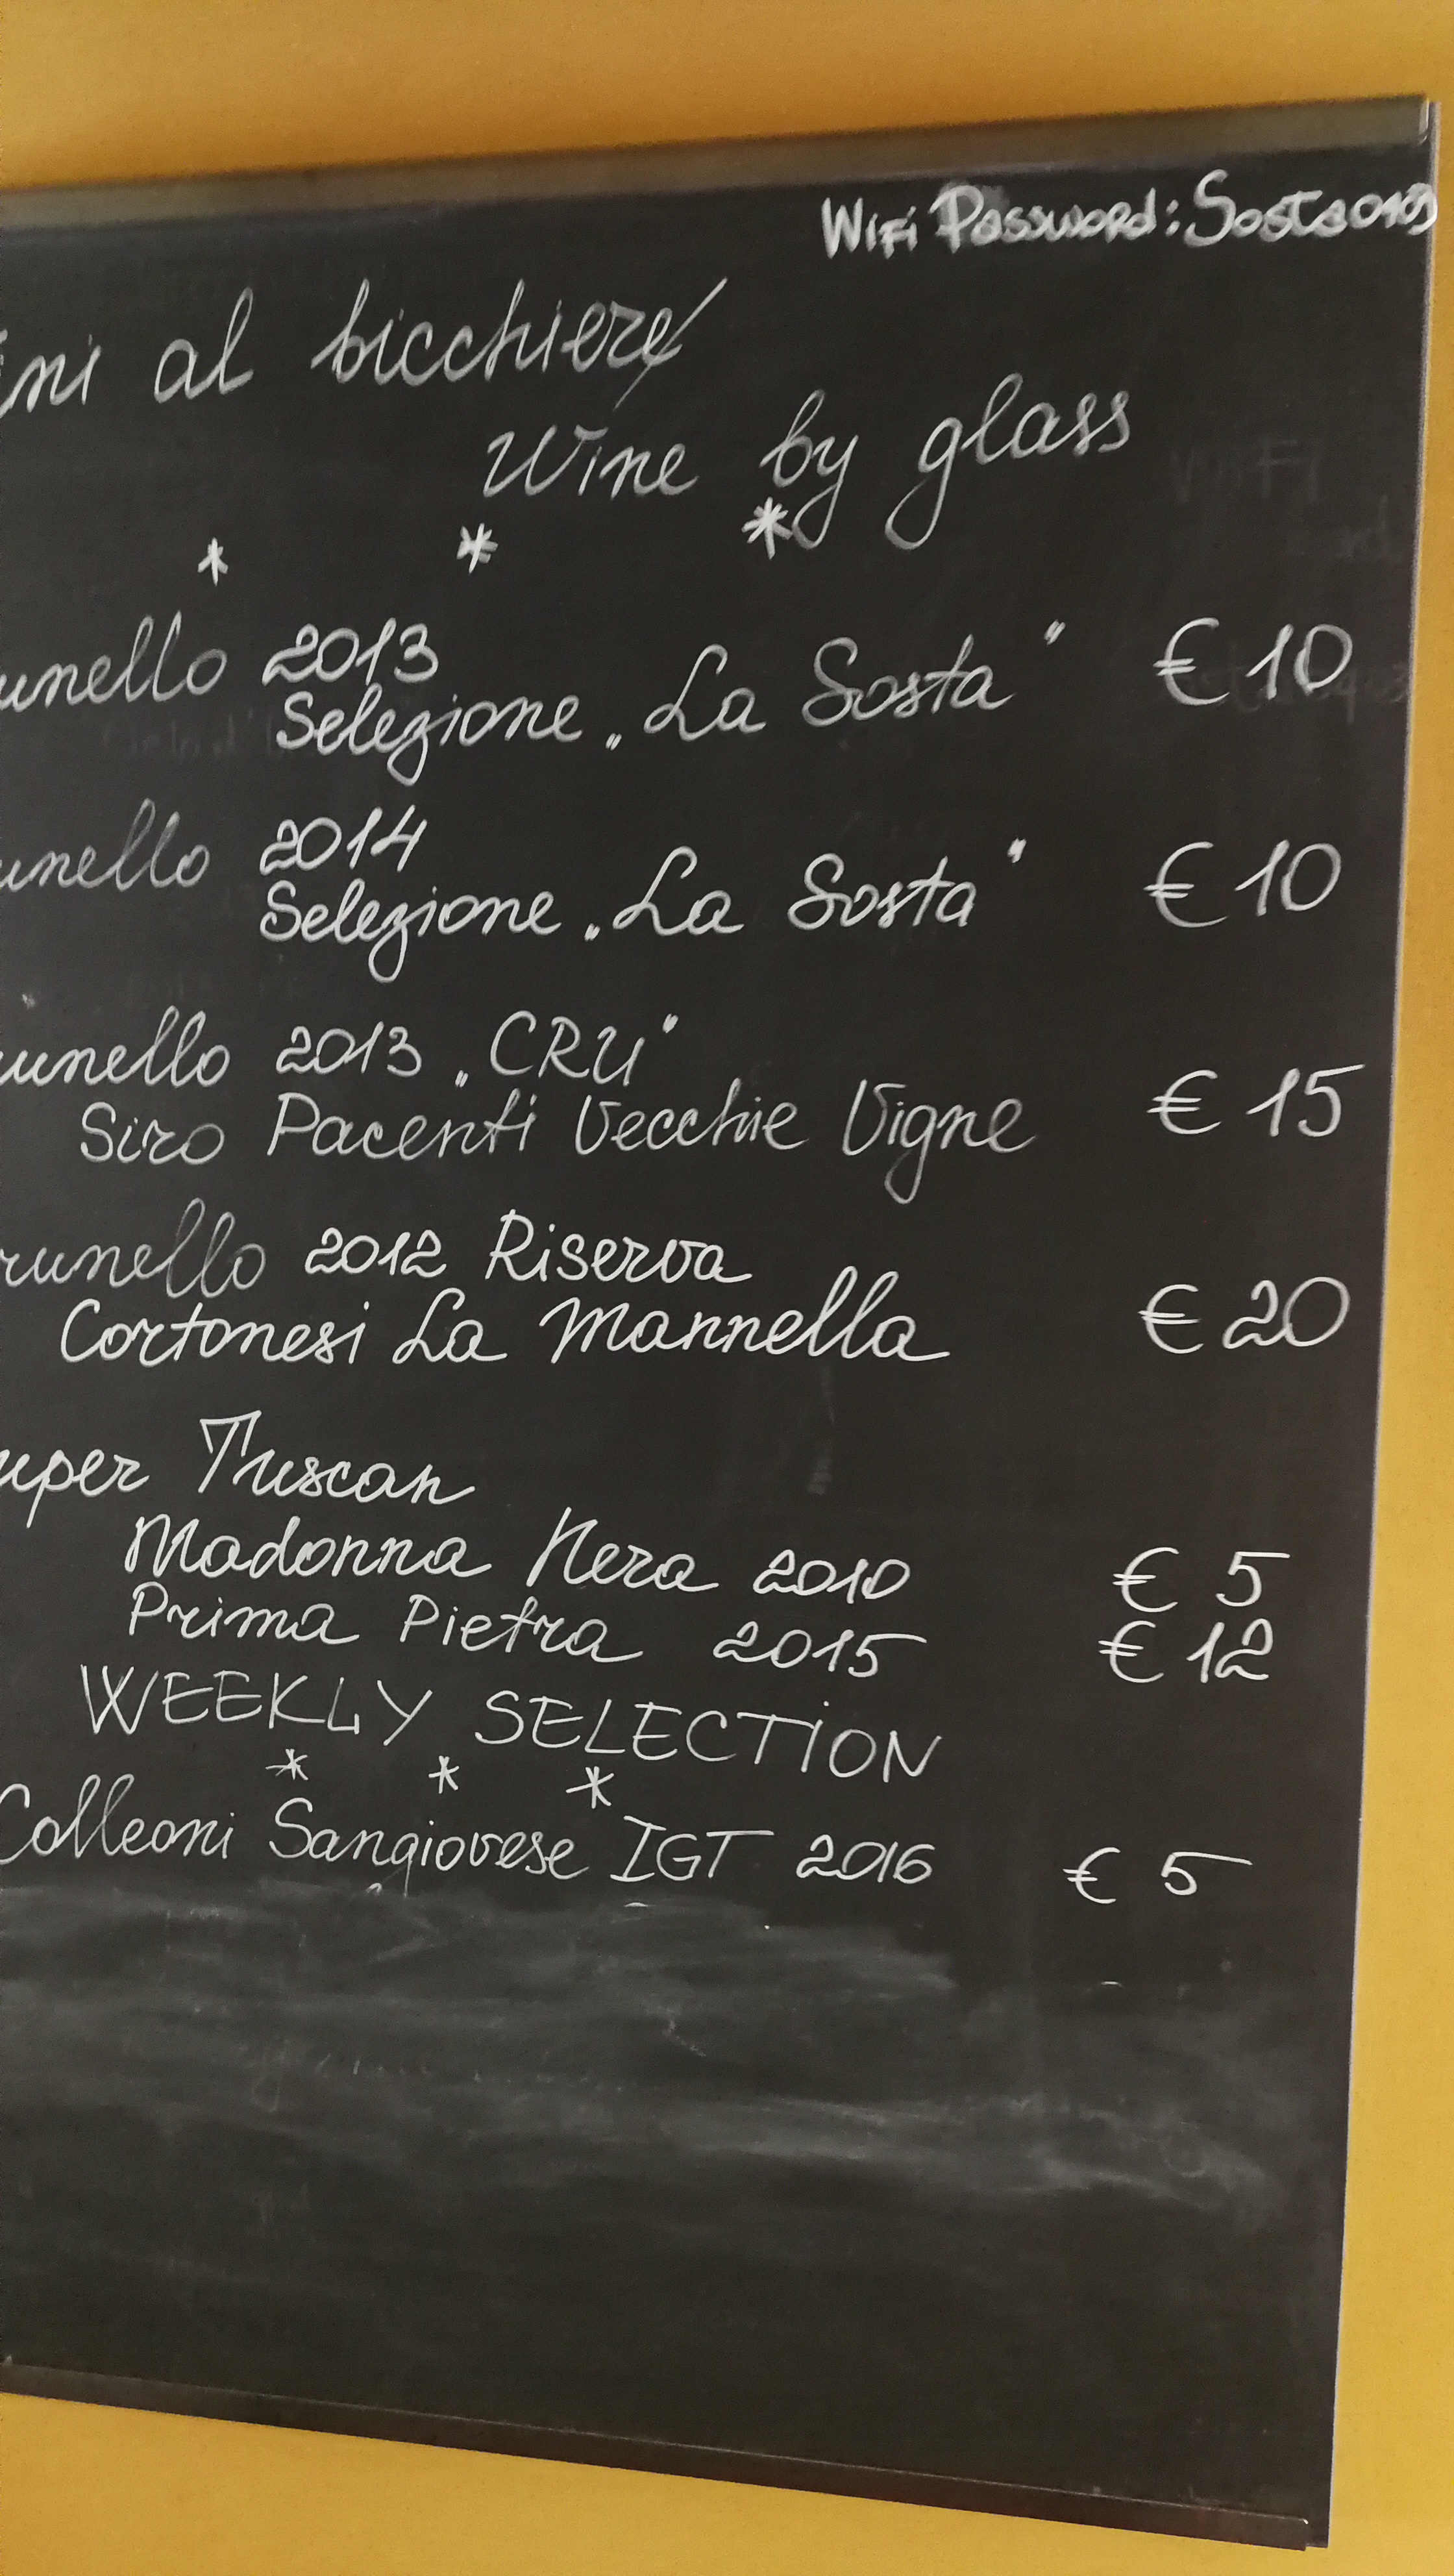 WiFi Password: Sosta0109
ini al bicchiere/
Wine by glass
* * *
unello 2013
Selezione „La Sosta" € 10
unello 2014
Selezione „La Sosta" € 10
unello 2013 „CRU"
Siro Pacenti Vecchie Vigne € 15
runello 2012 Riserva
Cortonesi La Mannella € 20
uper Tuscan
Madonna Nera 2010 € 5
Prima Pietra 2015 € 12
WEEKLY SELECTION
* * *
Colleoni Sangiovese IGT 2016 € 5